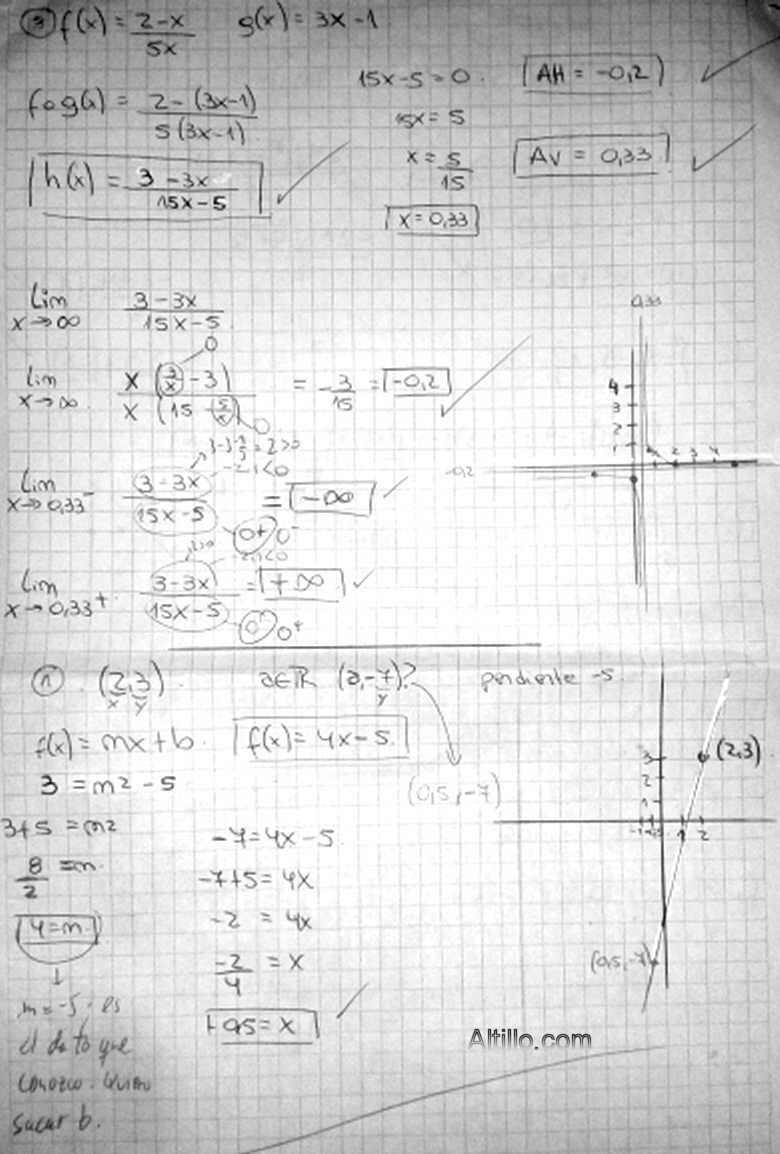 ③ f(x) = 2-x / 5x   g(x) = 3x - 1
fog(x) = 2 - (3x-1) / 5(3x-1)
h(x) = 3 - 3x / 15x - 5
15x - 5 = 0
15x = 5
x = 5/15
x = 0,33
AH = -0,2
AV = 0,33
Lim x→∞ 3 - 3x / 15x - 5
0
Lim x→∞ x (3/x - 3) / x (15 - 5/x) = -3/15 = -0,2
0
Lim x→0,33⁻ 3 - 3x / 15x - 5 = -∞
0+ 0⁻
Lim x→0,33⁺ 3 - 3x / 15x - 5 = +∞
0⁻ 0⁺
0,33
4
3
2
1
2 3 4
-0,2
① (2,3) a∈ℝ (a,-7)? pendiente -5
x y y
f(x) = mx + b
f(x) = 4x - 5
3 = m2 - 5
3+5 = m2
8/2 = m
4 = m
↓
m = -5, es
el dato que
conozco. Quiero
sacar b.
(0,5, -7)
-7 = 4x - 5
-7+5 = 4x
-2 = 4x
-2/4 = x
-0,5 = x
(2,3)
3
2
1
1 2
(0,5, -7)
Altillo.com